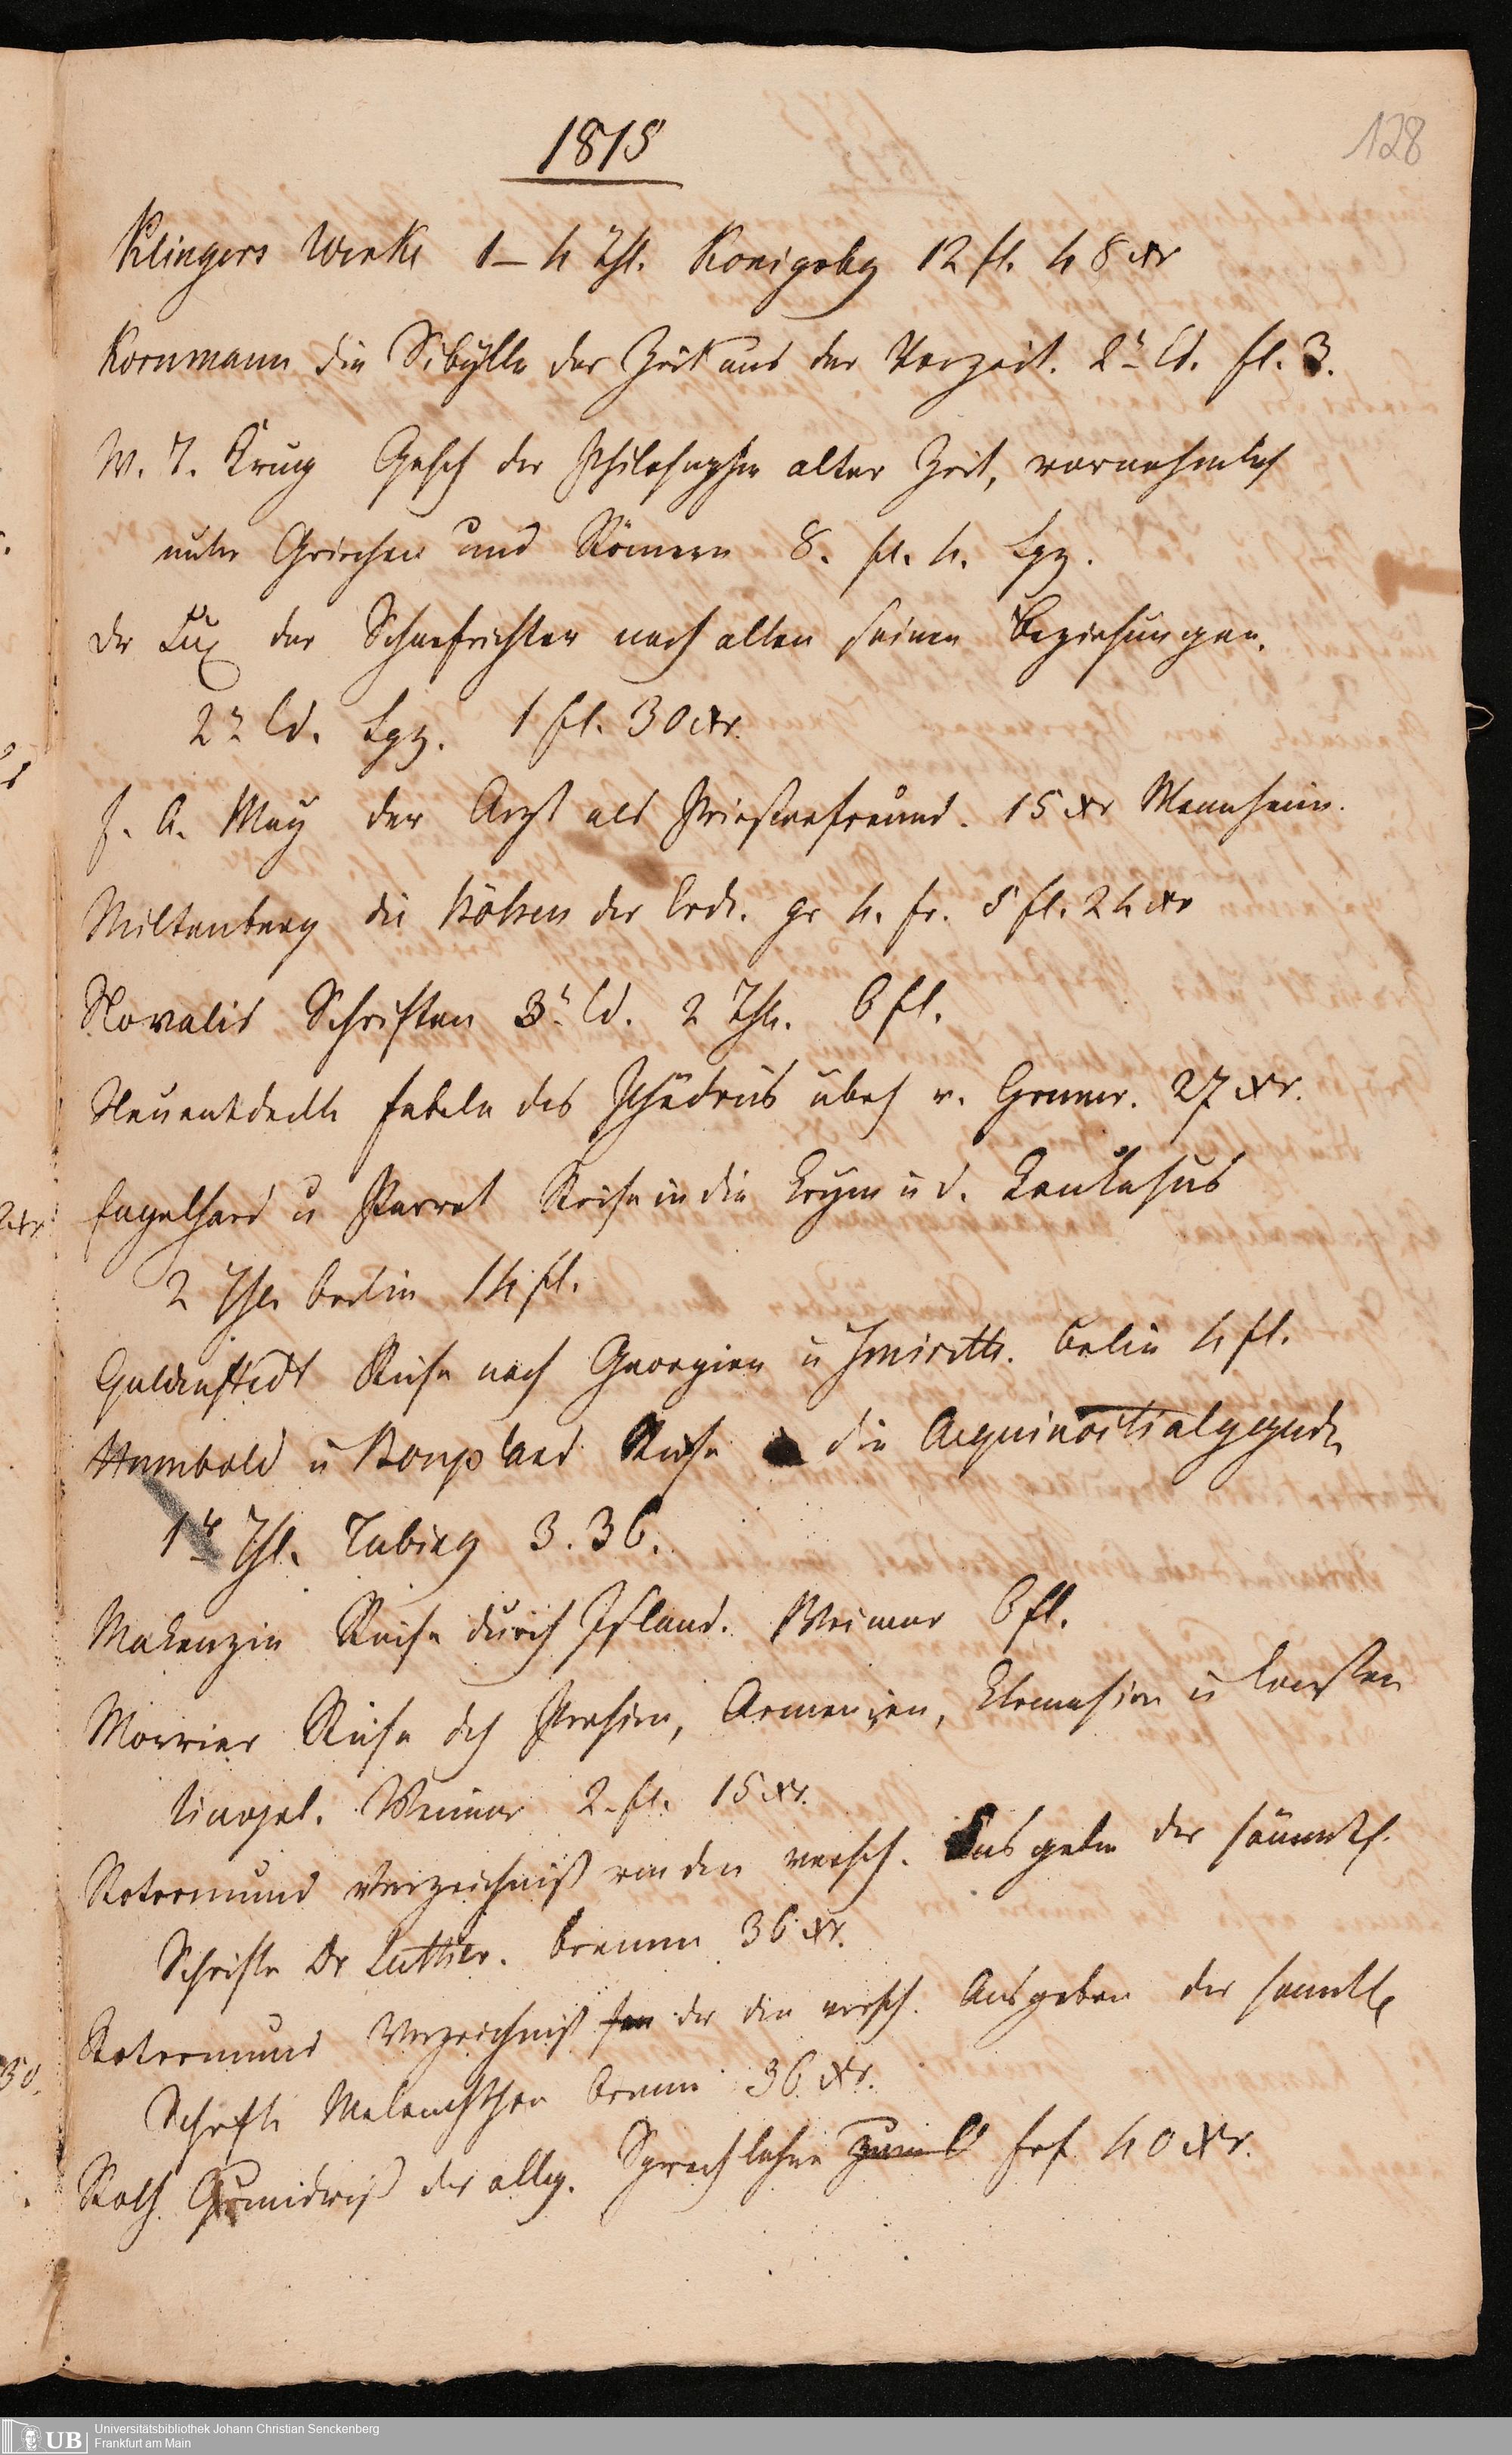 1815
128
Klingers Werke 1–4 Thl. Konigsbg 12 fl. 48 xr
Kornmann die Sibylle der Zeit aus der Vorzeit. 2r Bd. fl. 3.
W. T. Krug Gesch der Philosophie alter Zeit, vornehmlich
unter Griechen und Römern 8. fl. 4. Lpz.
Dr Lux der Scharfrichter nach allen seinen Beziehungen.
2r Bd. Lpz. 1 fl. 30 xr.
F. A. May der Arzt als Priesterfreund. 15 xr Mannheim.
Miltenberg die Höhen der Erde. gr 4. fr. 5 fl. 24 xr
Novalis Schriften 3r Bd. 2 Thle. 6 fl.
Neuentdeckte Fabeln des Phädrus übers v. 27 xr.
Engelhard u Parrot Reise in die Krym u d. Kaukasus
2 Thle Berlin 14 fl.
Guldenstedt Reise nach Georgien u Imirethi. Berlin 4 fl.
Humbold u Bonpland Reise die Aequinoctialgegenden
1r Thl. Tubing 3.36.
Makenzie Reise durch Island. Weimar 6 fl.
Morrier Reise dch Persien, Armenien, Kleinasien u Konstan
tinopel. Weimar 2 fl. 15 xr.
Rotermund Verzeichniß von den versch. Ausgaben der sämmtl.
Schriften Dr Luther. Bremen 36 xr.
Rotermund Verzeichniß der die versch. Ausgaben der sammtl
Schrift Melanchthon Bremen 36 xr.
Roth Grundriß der allg. Sprachlehre Frf 40 xr.
Universitätsbibliothek Johann Christian Senckenberg
Frankfurt am Main
UB